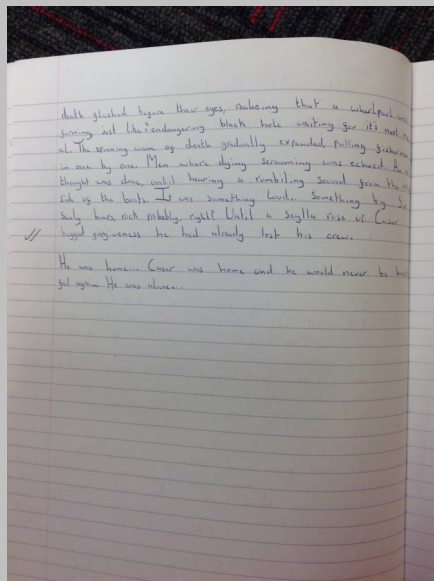 death flashed before their eyes, realising that a whirlpool was
forming just like endangering black hole waiting for it's next
at. The spinning wave of death gradually expanded, pulling fisherman
in one by one. Men where dying screaming was echoed.
thought was done, until hearing a rumbiling sound from the
side of the boats. It was something loud.. Something big
Scaly rich probably, right? Until a Scylla rose
begged forgiveness he had already lost his crew.
He was home... was home and he would never be
ful again He was alone...